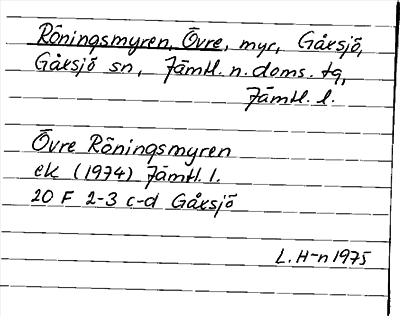 Röningsmyren, Övre, myr, Gåxsjö,
Gåxsjö sn, Jämtl. n. doms. tg,
Jämtl. l.
Övre Röningsmyren
ek (1974) Jämtl. l.
20 F 2-3 c-d Gåxsjö
L. H-n 1975